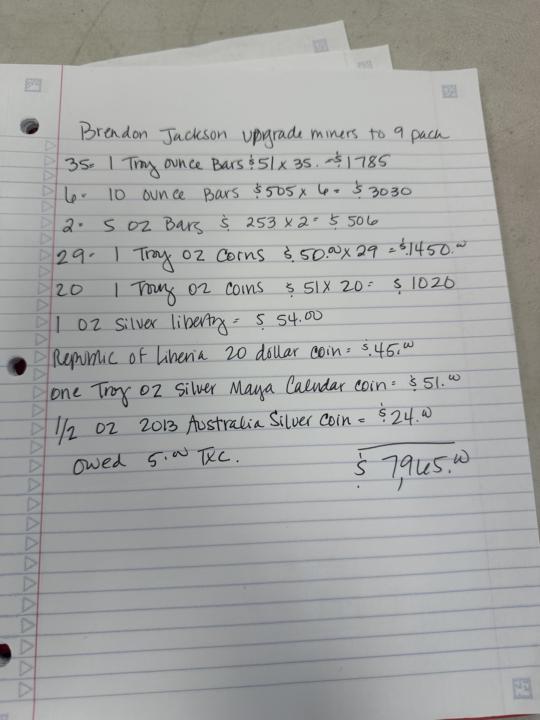 Brendon Jackson upgrade miners to 9 pack
35= 1 Troy ounce Bars $51 x 35. = $1785
6- 10 ounce Bars $505 x 6 = $3030
2- 5 oz Bars $ 253 x 2 = $ 506
29- 1 Troy oz Coins $ 50.00 x 29 = $1450.00
20 1 Troy oz coins $ 51 x 20 = $ 1020
1 oz Silver liberty = $ 54.00
Republic of Liberia 20 dollar coin = $.45.00
one Troy oz Silver Maya Calendar coin = $51.00
1/2 oz 2013 Australia Silver coin = $24.00
owed 5.00 TXC.
$ 7,965.00